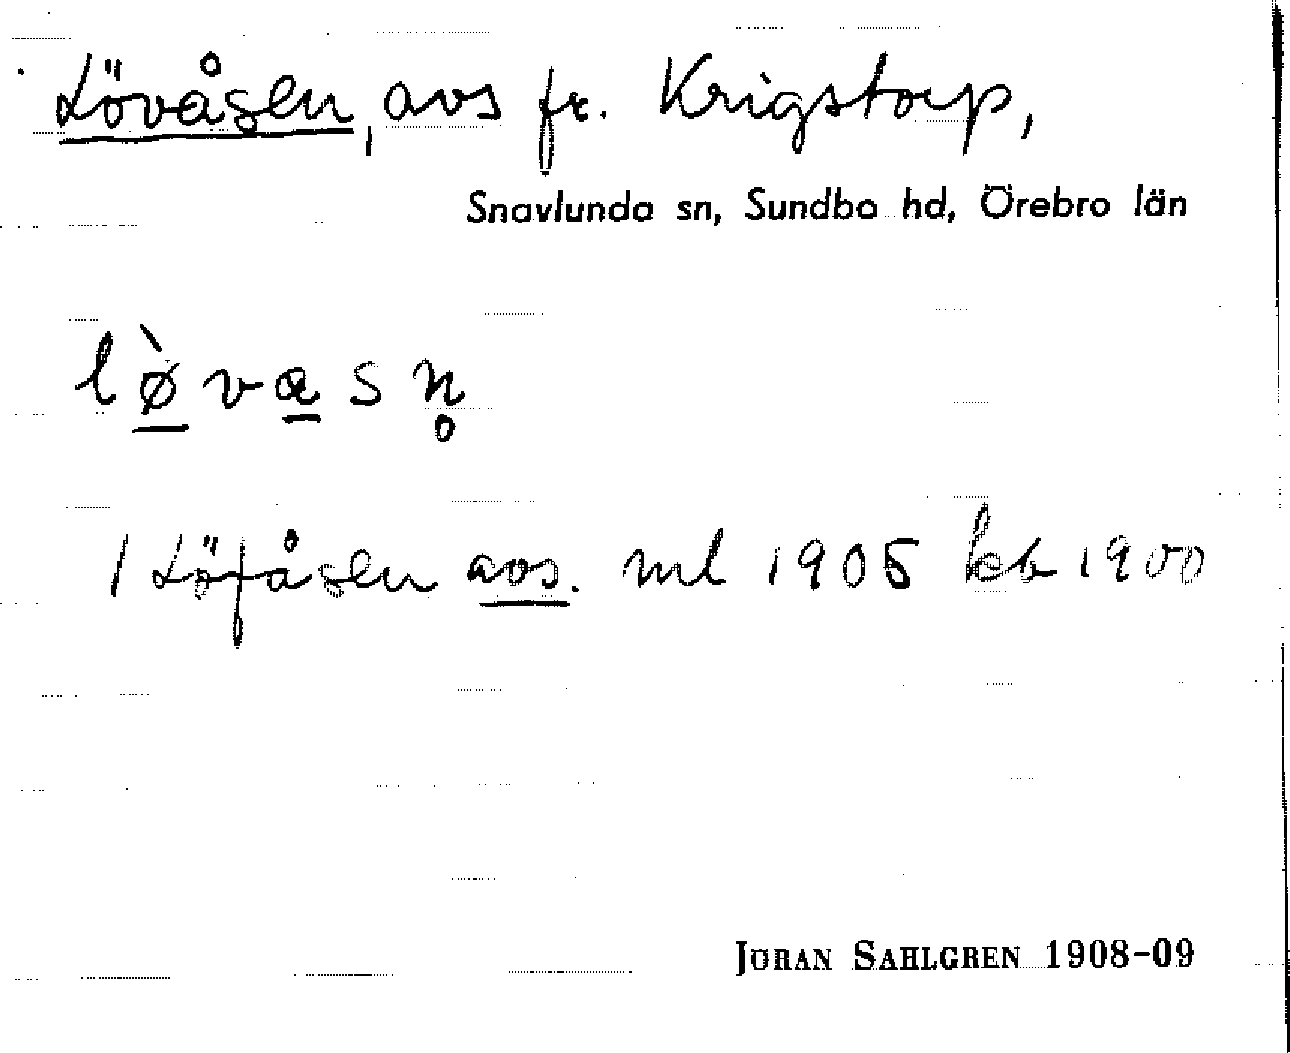 Lövåsen, avs fr. Krigstorp,
Snavlunda sn, Sundbo hd, Örebro län
lø̀vasn̥
1 Löfåsen avs. ml 1905 kb 1900
JÖRAN SAHLGREN 1908-09